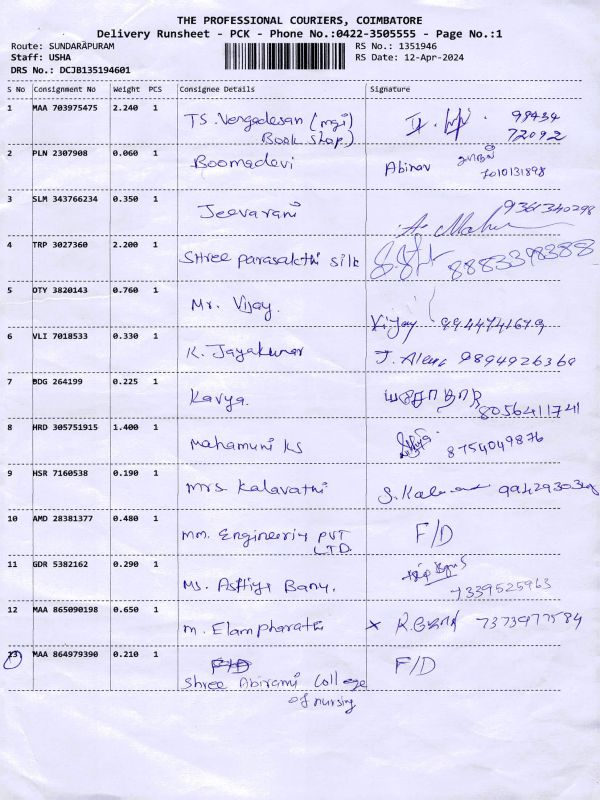 THE PROFESSIONAL COURIERS, COIMBATORE
Delivery Runsheet - PCK - Phone No.:0422-3505555 - Page No.:1
Route: SUNDARAPURAM RS No.: 1351946
Staff: USHA RS Date: 12-Apr-2024
DRS No.: DCJB135194601
S No Consignment No Weight PCS Consignee Details Signature
1 MAA 703975475 2.240 1 TS. Vengadesan (mgi) 99434
Book shop.) 72092
2 PLN 2307908 0.060 1 Boomadevi Abinav 7010131898
3 SLM 343766234 0.350 1 Jeevarani 9361340298
4 TRP 3027360 2.200 1 Shree parasakthi silk 8883398388
5 OTY 3820143 0.760 1 Mr. Vijay. Vijay 9944741679
6 VLI 7018533 0.330 1 K. Jayakumar 9894926360
7 BDG 264199 0.225 1 Kavya. 8056411741
8 HRD 305751915 1.400 1 Mahamuni KS 8754049876
9 HSR 7160538 0.190 1 Mrs Kalavathi
10 AMD 28381377 0.480 1 MM. Engineering PVT F/D
LTD.
11 GDR 5382162 0.290 1 Ms. Asfiya Banu. 7339525963
12 MAA 865090198 0.650 1 M. Elampharathi x 7373977584
13 MAA 864979390 0.210 1 F/D F/D
Shree Abirami College
of nursing